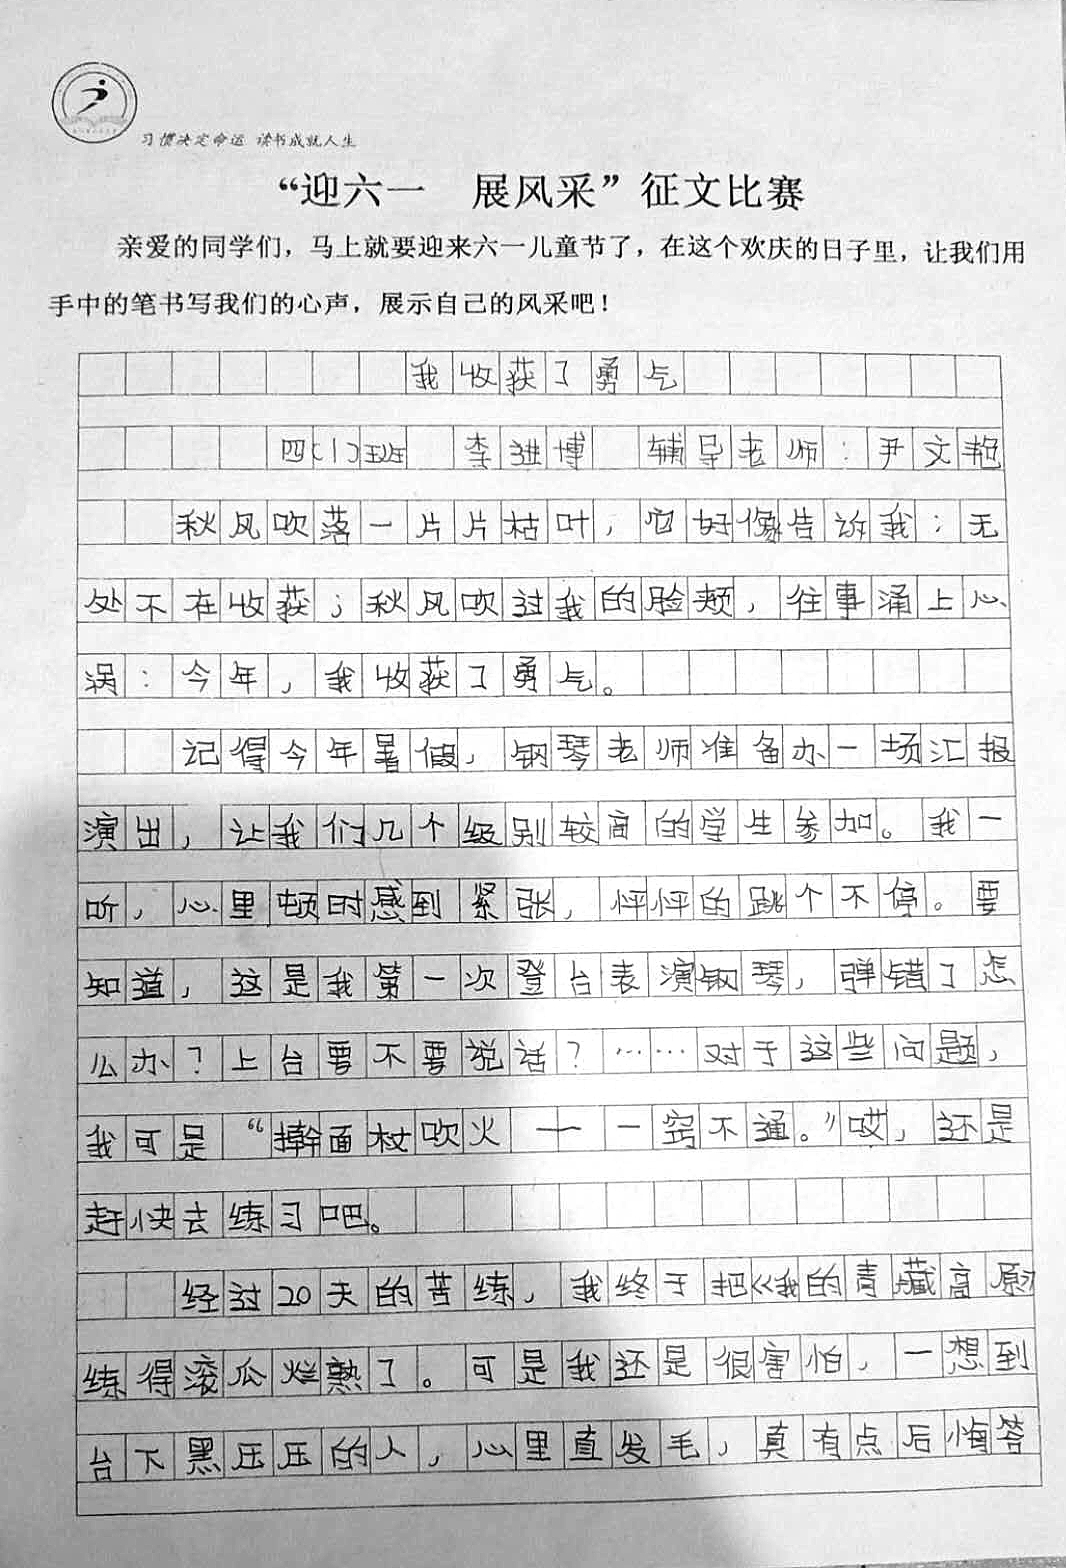 习惯决定命运 读书成就人生
“迎六一 展风采”征文比赛
亲爱的同学们，马上就要迎来六一儿童节了，在这个欢庆的日子里，让我们用
手中的笔书写我们的心声，展示自己的风采吧！
我收获了勇气
四(1)班 李进博 辅导老师：尹文艳
秋风吹落一片片枯叶，它好像告诉我；无
处不在收获；秋风吹过我的脸颊，往事涌上心
涡：今年，我收获了勇气。
记得今年暑假，钢琴老师准备办一场汇报
演出，让我们几个级别较高的学生参加。我一
听，心里顿时感到紧张，怦怦的跳个不停。要
知道，这是我第一次登台表演钢琴，弹错了怎
么办？上台要不要说话？……对于这些问题，
我可是“擀面杖吹火——一窍不通。”哎，还是
赶快去练习吧。
经过20天的苦练，我终于把《我的青藏高原》
练得滚瓜烂熟了。可是我还是很害怕，一想到
台下黑压压的人，心里直发毛，真有点后悔答